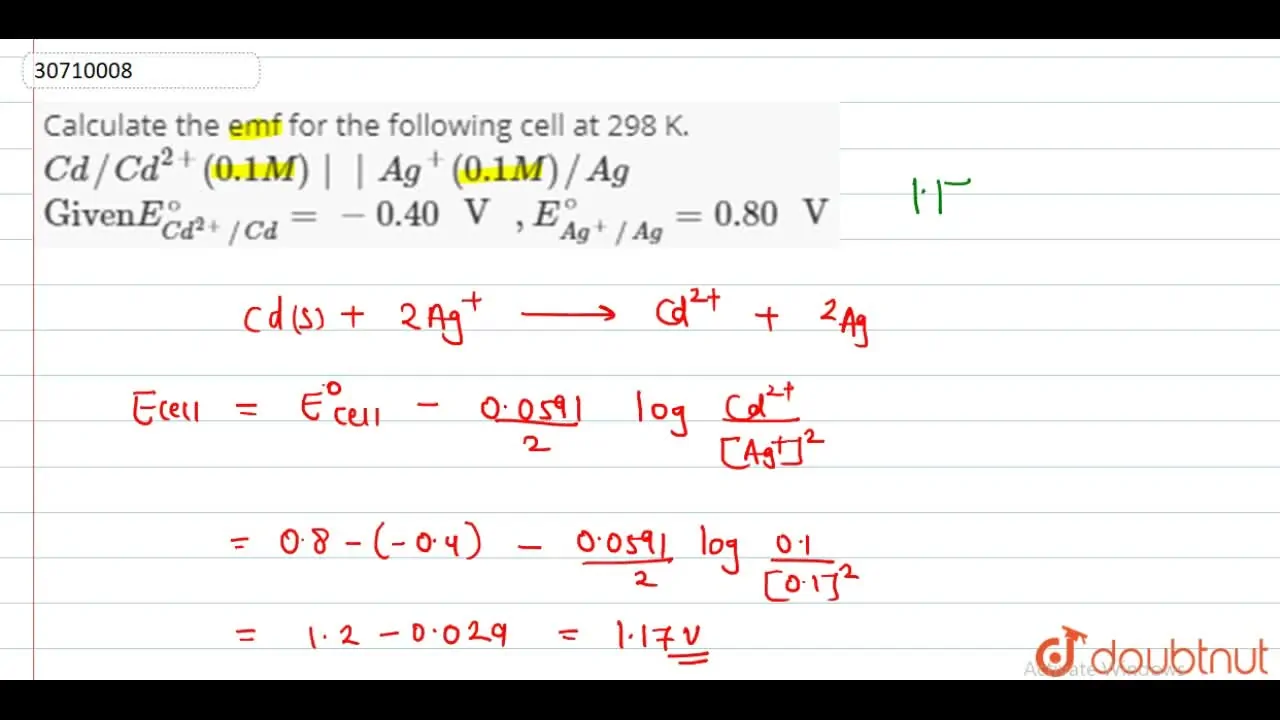 30710008
Calculate the emf for the following cell at 298 K.
Cd/Cd²⁺(0.1M)||Ag⁺(0.1M)/Ag
GivenE°_{Cd²⁺/Cd} = −0.40 V , E°_{Ag⁺/Ag} = 0.80 V
Cd(s) + 2Ag⁺ ⟶ Cd²⁺ + 2Ag
Ecell = E°cell - 0.0591/2 log Cd²⁺/[Ag⁺]²
= 0.8 - (-0.4) - 0.0591/2 log 0.1/[0.1]²
= 1.2 - 0.029 = 1.17 V
doubtnut
Activate Windows